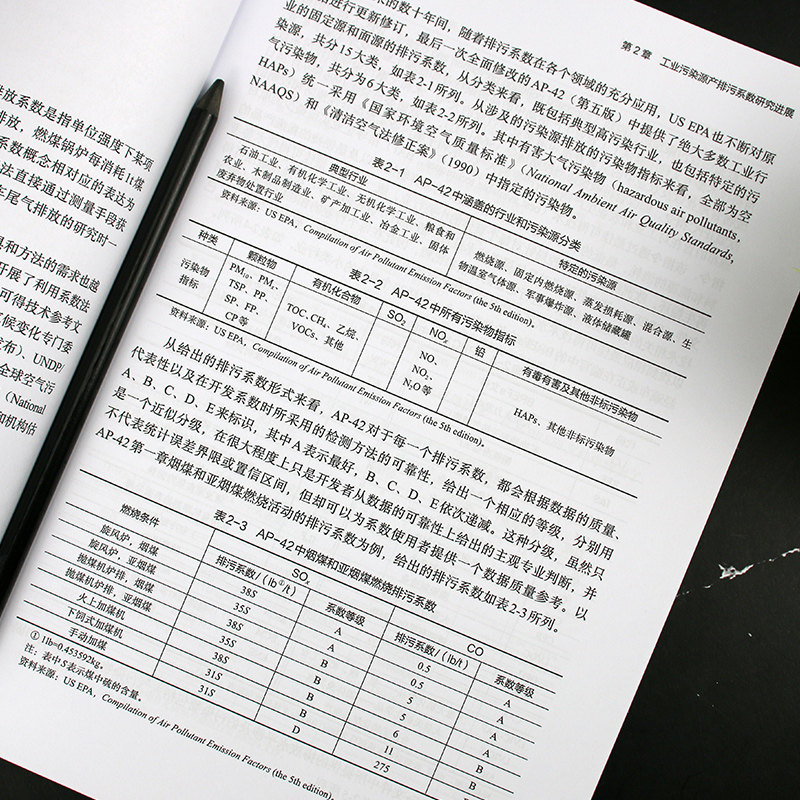 放系数是指单位强度下某项
排放，燃煤锅炉每消耗1t煤
系数概念相对应的表达为
法直接通过测量手段获
车尾气排放的研究时一
具和方法的需求也越
开展了利用系数法
可得技术参考文
候变化专门委
发布）、UNDP/
全球空气污
（National
和机构估
第2章 工业污染源产排污系数研究进展
的数十年间，随着排污系数在各个领域的充分应用，US EPA也不断对原
进行更新修订，最后一次全面修改的AP-42（第五版）中提供了绝大多数工业行
业的固定源和面源的排污系数，从分类来看，既包括典型高污染行业，也包括特定的污
染源，共分15大类，如表2-1所列。从涉及的污染源排放的污染物指标来看，全部为空
气污染物，共分为6大类，如表2-2所列。其中有害大气污染物（hazardous air pollutants，
HAPs）统一采用《国家环境空气质量标准》（National Ambient Air Quality Standards，
NAAQS）和《清洁空气法修正案》（1990）中指定的污染物。
表2-1 AP-42中涵盖的行业和污染源分类
典型行业 特定的污染源
石油工业、有机化学工业、无机化学工业、粮食和
农业、木制品制造业、矿产加工业、冶金工业、固体
废弃物处置行业
燃烧源、固定内燃烧源、蒸发损耗源、混合源、生
物温室气体源、军事爆炸源、液体储藏罐
资料来源：US EPA，Compilation of Air Pollutant Emission Factors (the 5th edition).
表2-2 AP-42中所有污染物指标
种类 颗粒物 有机化合物 SO₂ NOₓ 铅 有毒有害及其他非标污染物
污染物
指标
PM₁₀、PM、
TSP、PP、
SP、FP、
CP等
TOC、CH₄、乙烷、
VOCs、其他
NO、
NO₂、
N₂O等
HAPs、其他非标污染物
资料来源：US EPA，Compilation of Air Pollutant Emission Factors (the 5th edition).
从给出的排污系数形式来看，AP-42对于每一个排污系数，都会根据数据的质量、
代表性以及在开发系数时所采用的检测方法的可靠性，给出一个相应的等级，分别用
A、B、C、D、E来标识，其中A表示最好，B、C、D、E依次递减。这种分级，虽然只
是一个近似分级，在很大程度上只是开发者从数据的可靠性上给出的主观专业判断，并
不代表统计误差界限或置信区间，但却可以为系数使用者提供一个数据质量参考。以
AP-42第一章烟煤和亚烟煤燃烧活动的排污系数为例，给出的排污系数如表2-3所列。
表2-3 AP-42中烟煤和亚烟煤燃烧排污系数
燃烧条件 SOₓ CO
排污系数/（lb①/t） 系数等级 排污系数/（lb/t） 系数等级
旋风炉，烟煤 38S A 0.5 A
旋风炉，亚烟煤 35S A 0.5 A
抛煤机炉排，烟煤 38S B 5 A
抛煤机炉排，亚烟煤 35S B 5 A
火上加煤机 38S B 6 B
下饲式加煤机 31S B 11 B
手动加煤 31S D 275
① 1lb=0.453592kg。
注：表中S表示煤中硫的含量。
资料来源：US EPA，Compilation of Air Pollutant Emission Factors (the 5th edition).